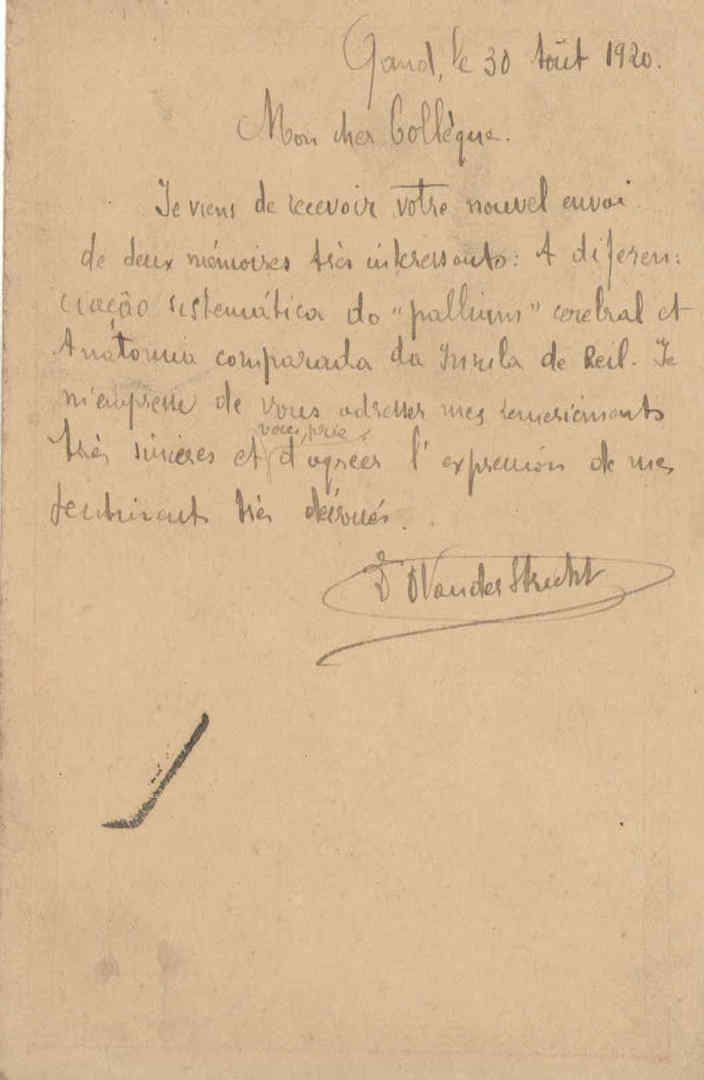 Gand, le 30 Août 1920.
Mon cher Collègue.
Je viens de recevoir votre nouvel envoi
de deux mémoires très intéressants: A diferen:
ciação sistemática do "pallium" cerebral et
Anatomia comparada da Insula de Reil. Je
m'empresse de vous adresser mes remerciments
vous prie
très sincères et d'agréer l'expression de mes
sentiments très dévoués.
O Van der Stricht